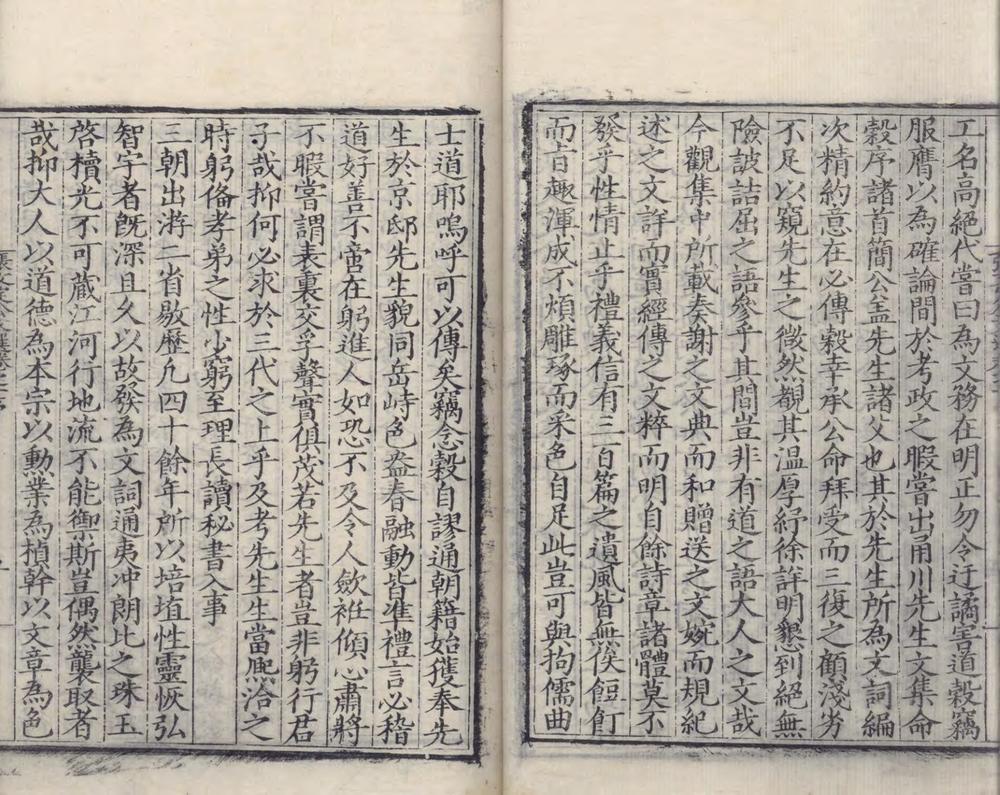 工名高絕代嘗曰為文務在明正勿令迂譎害道穀竊
服膺以為確論間於考政之暇嘗出甬川先生文集命
穀序諸首簡公盖先生諸父也其於先生所為文詞編
次精約意在必傳穀幸承公命拜受而三復之顧淺劣
不足以窺先生之徴然覩其温厚紆徐詳明懇到絕無
險詖詰屈之語參乎其間豈非有道之語大人之文哉
今觀集中所載奏謝之文典而和贈送之文婉而規紀
述之文詳而實經傳之文粹而明自餘詩章諸體莫不
發乎性情止乎禮義信有三百篇之遺風皆無俟飣
而旨趣渾成不煩雕琢而采色自足此豈可與拘儒曲
士道耶嗚呼可以傳矣竊念穀自謬通朝籍始獲奉先
生於京邸先生貌同岳峙色盎春融動皆準禮言必稽
道好善不啻在躬進人如恐不及令人歛袵傾心肅將
不暇嘗謂表裏交孚聲實俱茂若先生者豈非躬行君
子哉抑何必求於三代之上乎及考先生生當熈洽之
時躬俻孝弟之性少窮至理長讀秘書入事
三朝出游二省敭歷凢四十餘年所以培埴性靈恢弘
智宇者旣深且久以故發為文詞通夷冲朗比之珠玉
啓櫝光不可藏江河行地流不能禦斯豈偶然襲取者
哉抑大人以道德為本宗以勳業為楨幹以文章為色